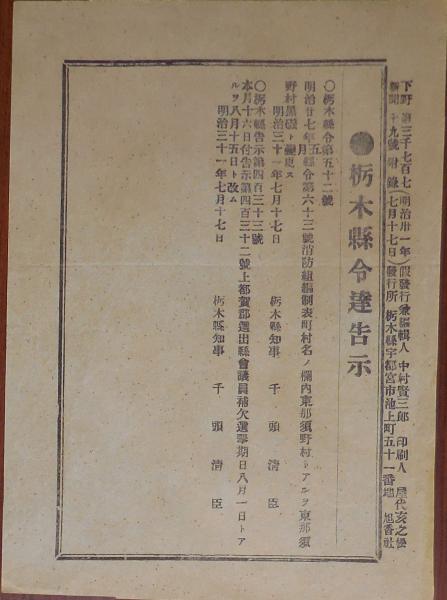 下野新聞 第三千七百七十九號附錄(明治卅一年七月十七日) 假發行兼編輯人 中村賢三郎 印刷人 屋代亥之松
發行所 栃木縣宇都宮市池上町五十一番地 旭香社
●栃木縣令達告示
〇栃木縣令第五十二號
明治廿七年五月縣令第六十三號消防組編制表町村名ノ欄內東那須野村トアルヲ東那須
野村黑磯ト變更ス
明治三十一年七月十七日 栃木縣知事 千頭清臣
〇栃木縣告示第四百三十三號
本月十六日付告示第四百三十二號上都賀郡選出縣會議員補欠選擧期日八月一日トア
ルヲ八月十五日ト改ム
明治三十一年七月十七日 栃木縣知事 千頭清臣